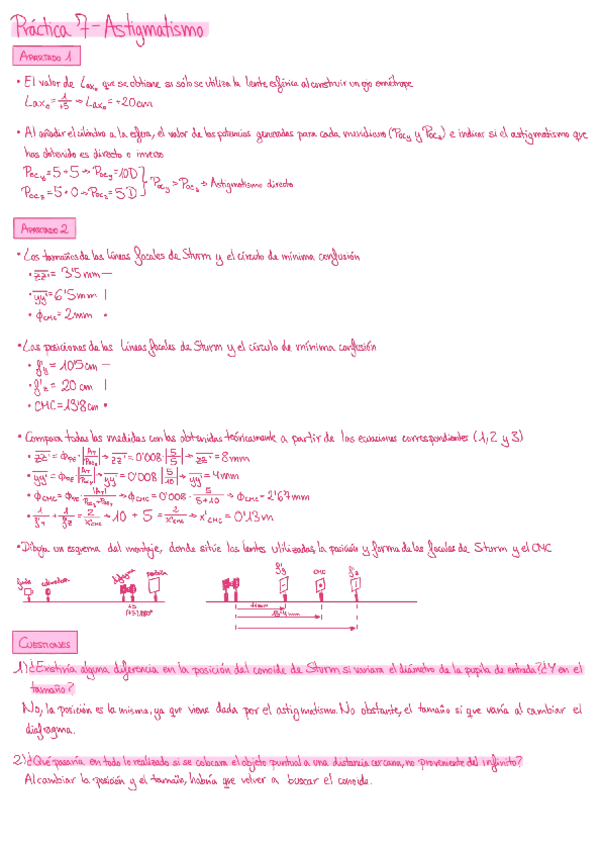 Práctica 7 - Astigmatismo
APARTADO 1
• El valor de Lax₀ que se obtiene si sólo se utiliza la lente esférica al construir un ojo emétrope
Lax₀ = 1/+5 → Lax₀ = +20cm
• Al añadir el cilindro a la esfera, el valor de las potencias generadas para cada meridiano (Pocy y Pocz) e indicar si el astigmatismo que
has obtenido es directo o inverso
Pocy = 5 + 5 → Pocy = 10D
Pocz = 5 + 0 → Pocz = 5D } Pocy > Pocz → Astigmatismo directo
APARTADO 2
• Los tamaños de las líneas focales de Sturm y el círculo de mínima confusión
• zz' = 3'5 mm —
• yy' = 6'5 mm |
• ϕCMC = 2mm •
• Las posiciones de las líneas focales de Sturm y el círculo de mínima confusión
• f'y = 10'5 cm —
• f'z = 20 cm |
• CMC = 13'8 cm •
• Compara todas las medidas con las obtenidas teóricamente a partir de las ecuaciones correspondientes (1, 2 y 3)
• zz' = ϕPE · |AT/Pocz| → zz' = 0'008 |5/5| → zz' = 8mm
• yy' = ϕPE · |AT/Pocy| → yy' = 0'008 |5/10| → yy' = 4mm
• ϕCMC = ϕPE · |AT|/Pocy+Pocz → ϕCMC = 0'008 · 5/5+10 → ϕCMC = 2'67mm
• 1/f'y + 1/f'z = 2/x'CMC → 10 + 5 = 2/x'CMC → x'CMC = 0'13m
• Dibuja un esquema del montaje, donde sitúe las lentes utilizadas, la posición y forma de las focales de Sturm y el CMC
pantalla
f'y
CMC
f'z
13'4 mm
CUESTIONES
1) ¿Existiría alguna diferencia en la posición del conoide de Sturm si variara el diámetro de la pupila de entrada? ¿Y en el
tamaño?
No, la posición es la misma, ya que viene dada por el astigmatismo. No obstante, el tamaño si que varía al cambiar el
diafragma.
2) ¿Qué pasaría en todo lo realizado si se colocara el objeto puntual a una distancia cercana, no proveniente del infinito?
Al cambiar la posición y el tamaño, habría que volver a buscar el conoide.